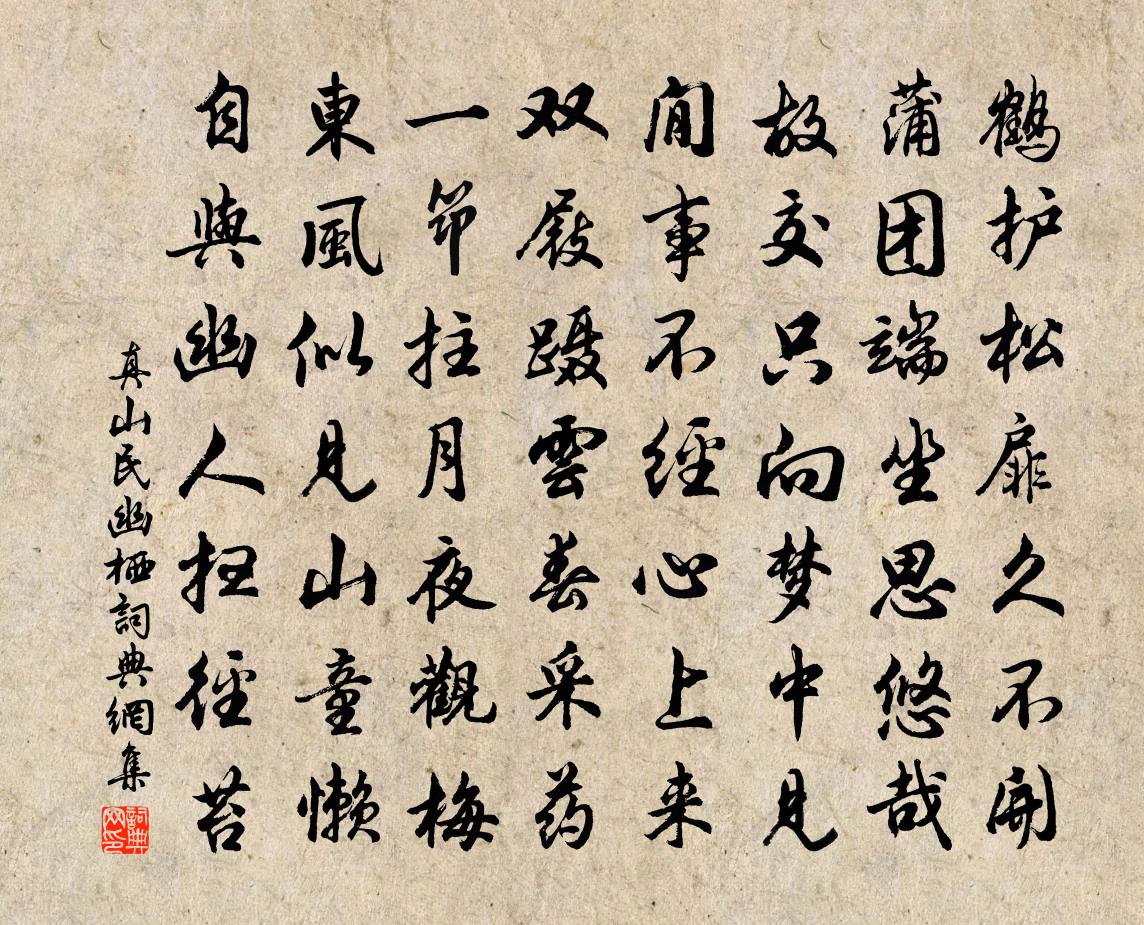 鹤护松扉久不開
蒲团端坐思悠哉
故交只向梦中見
閒事不經心上来
双屐蹑雲春采药
一笻拄月夜觀梅
東風似見山童懒
自與幽人扫徑苔
真山民幽栖詞典網集
詞典网印